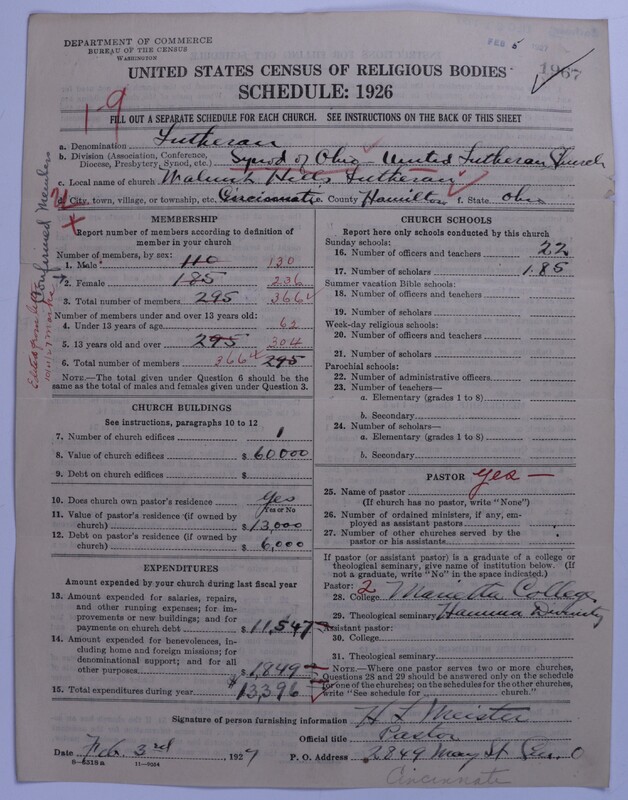 DEPARTMENT OF COMMERCE
BUREAU OF THE CENSUS
WASHINGTON
FEB 5
1967
UNITED STATES CENSUS OF RELIGIOUS BODIES
SCHEDULE: 1926
1-9
FILL OUT A SEPARATE SCHEDULE FOR EACH CHURCH. SEE INSTRUCTIONS ON THE BACK OF THIS SHEET
a. Denomination Lutheran
b. Division (Association, Conference, Diocese, Presbytery, Synod, etc.) Synod of Ohio - United Lutheran Church
c. Local name of church Walnut Hills Lutheran
d. City, town, village, or township, etc. Cincinnati e. County Hamilton f. State Ohio
Confirmed Members
MEMBERSHIP
Report number of members according to definition of
member in your church
Number of members, by sex:
1. Male 110 130
2. Female 185 236
3. Total number of members 295 366
Number of members under and over 13 years old:
4. Under 13 years of age 62
5. 13 years old and over 295 304
6. Total number of members 366 295
NOTE.—The total given under Question 6 should be the
same as the total of males and females given under Question 3.
CHURCH BUILDINGS
See instructions, paragraphs 10 to 12
7. Number of church edifices 1
8. Value of church edifices $ 60000
9. Debt on church edifices $
10. Does church own pastor's residence Yes
Yes or No
11. Value of pastor's residence (if owned by
church) $ 13,000
12. Debt on pastor's residence (if owned by
church) $ 6,000
EXPENDITURES
Amount expended by your church during last fiscal year
13. Amount expended for salaries, repairs,
and other running expenses; for im-
provements or new buildings; and for
payments on church debt $ 11,547
14. Amount expended for benevolences, in-
cluding home and foreign missions; for
denominational support; and for all
other purposes 1849
15. Total expenditures during year $ 13,396
CHURCH SCHOOLS
Report here only schools conducted by this church
Sunday schools:
16. Number of officers and teachers 22
17. Number of scholars 185
Summer vacation Bible schools:
18. Number of officers and teachers
19. Number of scholars
Week-day religious schools:
20. Number of officers and teachers
21. Number of scholars
Parochial schools:
22. Number of administrative officers
23. Number of teachers—
a. Elementary (grades 1 to 8)
b. Secondary
24. Number of scholars—
a. Elementary (grades 1 to 8)
b. Secondary
PASTOR yes —
25. Name of pastor
(If church has no pastor, write "None")
26. Number of ordained ministers, if any, em-
ployed as assistant pastors
27. Number of other churches served by the
pastor or his assistants
If pastor (or assistant pastor) is a graduate of a college or
theological seminary, give name of institution below. (If
not a graduate, write "No" in the space indicated.)
Pastor: 2
28. College Marietta College
29. Theological seminary Hamma Divinity
Assistant pastor:
30. College
31. Theological seminary
NOTE.—Where one pastor serves two or more churches,
Questions 28 and 29 should be answered only on the schedule
for one of the churches; on the schedules for the other churches,
write "See schedule for church."
Signature of person furnishing information H L Meister
Official title Pastor
Date Feb. 3rd, 1927 P. O. Address 2849 May St Cin. O
8-5318a 11-9324
Cincinnati